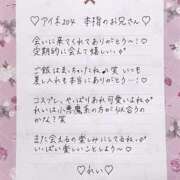 ♡アイネ204 本指のお兄さん♡
会いに来てくれてありがとう〜!
定期的に会えて嬉しい。
♡ご飯はまっちゃたね♪笑 いつも
差し入れも本当にありがとう〜!
コスプレ、やっぱりあれ可愛いよね♡
れいは小悪魔系の方が似合うの
かな?笑
また会えるの楽しみにしてるね。
いっぱい楽しいことしよう〜♡
♡れい♡